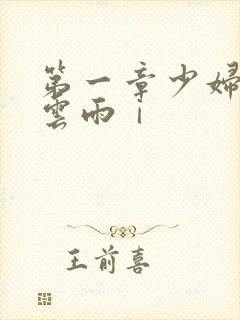 第一章少婦
雲雨｜
王前喜